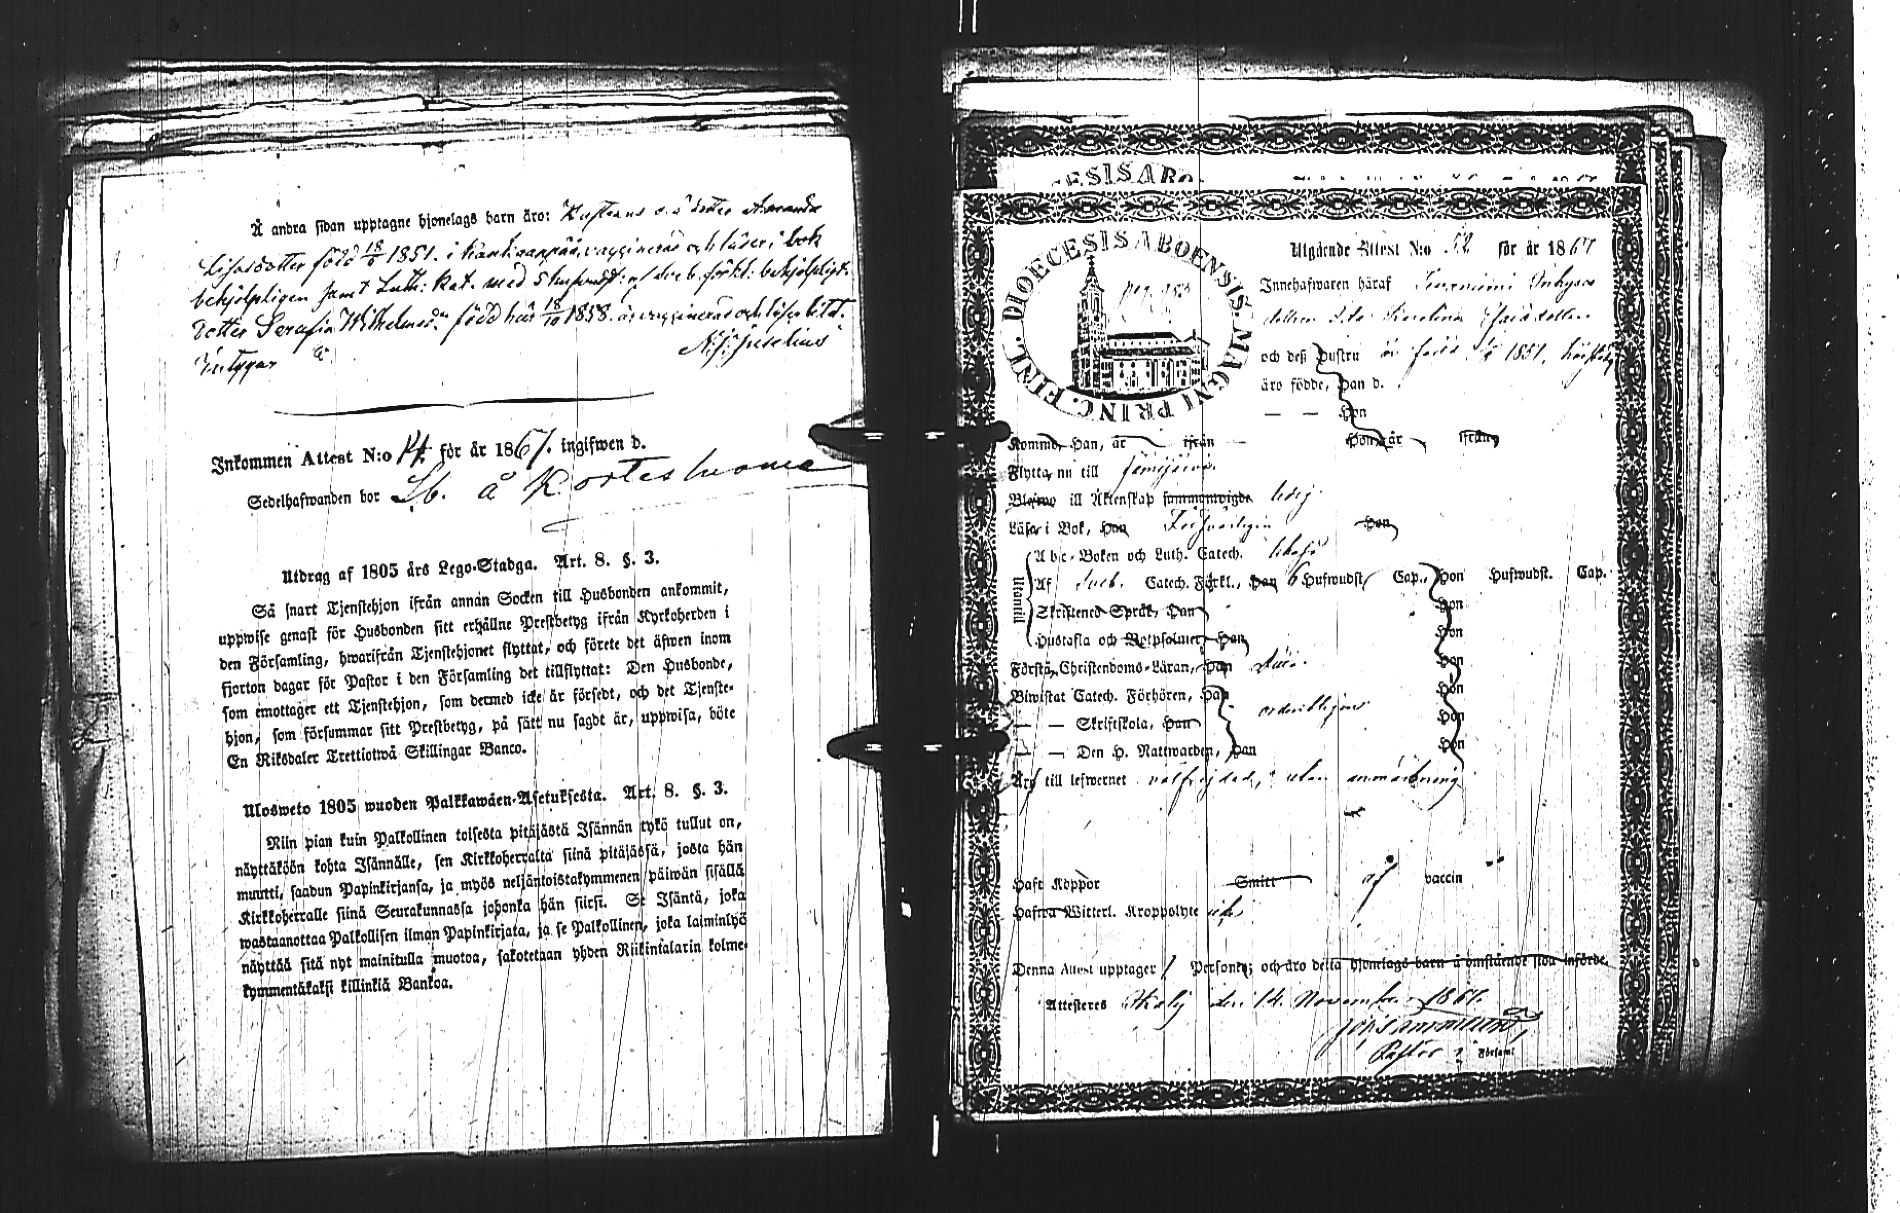 Å andra sidan upptagne hjonelags barn äro: Hustruns o. ä. dotter Amanda
Lisasdotter född 18/6 1851. i Kankaanpää, vaccinerad och läser i bok
behjelpligen samt Luth: Kat. med 5 hufvudst: af förkl: behjelpligt.
Dotter Serafia Wilhelmina född här 18/10 1858. är vaccinerad och läser litet.
Intygar
Inkommen Attest N:o 14 för år 1867. ingifwen d.
Sedelhafwanden bor Sb. å Kortesluoma
Utdrag af 1805 års Lego-Stadga. Art. 8. §. 3.
Så snart Tjenstehjon ifrån annan Socken till Husbonden ankommit,
uppwise genast för Husbonden sitt erhållne Prestbetyg ifrån Kyrkoherden i
den Församling, hwarifrån Tjenstehjonet flyttat, och förete det äfwen inom
fjorton dagar för Pastor i den Församling det tillflyttat: Den Husbonde,
som emottager ett Tjenstehjon, som dermed icke är försedt, och det Tjenste-
hjon, som försummar sitt Prestbetyg, på sätt nu sagdt är, uppwisa, böte
En Riksdaler Trettiotwå Skillingar Banco.
Ulosweto 1805 wuoden Palkkawäen-Asetuksesta. Art. 8. §. 3.
Niin pian kuin Palkollinen toisesta pitäjästä Isännän tykö tullut on,
näyttäköön kohta Isännälle, sen Kirkkoherralta siinä pitäjässä, josta hän
muutti, saadun Papinkirjansa, ja myös neljäntoistakymmenen päiwän sisällä
Kirkkoherralle siinä Seurakunnassa johonka hän siirsi. Se Isäntä, joka
wastaanottaa Palkollisen ilman Papinkirjata, ja se Palkollinen, joka laiminlyö
näyttää sitä nyt mainitulla muotoa, sakotetaan yhden Riikintalarin kolme-
kymmentäkaksi killinkiä Bankoa.
DIOECESIS ABOENSIS. MAGNI PRINC. FINL.
Utgående Attest N:o 52 för år 1867
Innehafwaren häraf Inhyses
dottern
och deß Hustru är född 1851,
äro födde, Han d.
— — Hon
Komme, Han, är ifrån — Hon, är ifrån
Flytta, nu till Jämijärvi.
Blefwe ill Äktenskap sammanwigde ledig
Läser i Bok, Han Försvarligen Hon
Utantill
Abc-Boken och Luth. Catech.
Af Sveb. Catech. Förkl., Han 6 Hufwudst. Cap., Hon Hufwudst. Cap.
Skriftenes Språk, Han Hon
Hustafla och Botpsalmer, Han Hon
Förstå, Christendoms-Läran, Han Hon
Biwistat Catech. Förhören, Han ordentligen Hon
— — Skriftskola, Han Hon
— — Den H. Nattwarden, Han Hon
Äro till lefwernet välfrejdad, utan anmärkning
Haft Koppor Smitt af vaccin
Hafwa Witterl. Kroppslyte ick.
Denna Attest upptager 1 Person, och äro detta hjonelags barn å omstående sida införde.
Attesteres den 14 November 1867.
Pastor i Förs:aml